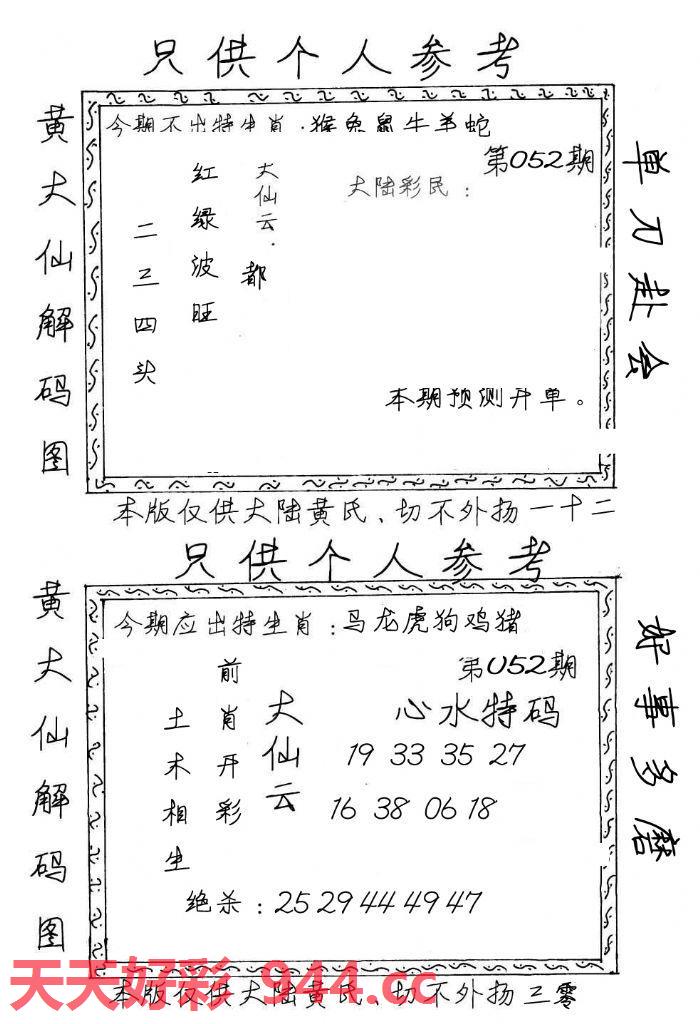 只供个人参考
黄大仙解码图
今期不出特生肖．猴兔鼠牛羊蛇
第052期
大陆彩民：
大仙云．都
红绿波旺
二三四头
本期预测开单。
单刀赴会
本版仅供大陆黄氏、切不外扬一十二
只供个人参考
黄大仙解码图
今期应出特生肖：马龙虎狗鸡猪
第052期
心水特码
19 33 35 27
16 38 06 18
大仙云
前肖开彩
土木相生
绝杀：25 29 44 49 47
好事多磨
天天好彩 944.cc
本版仅供大陆黄氏、切不外扬三零